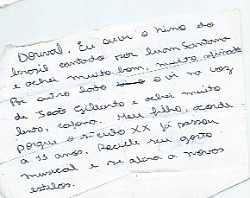 Dorval. Eu ouvi o hino do
brasil cantado por luan Santana
e achei muito bom, muito afinado
Por outro lado o vi na voz
de João Gilberto e achei muito
lento, cafona. Meu filho, acorde
porque o século XX já passou
a 11 anos. Recicle seu gosto
musical e se abra a novos
estilos.